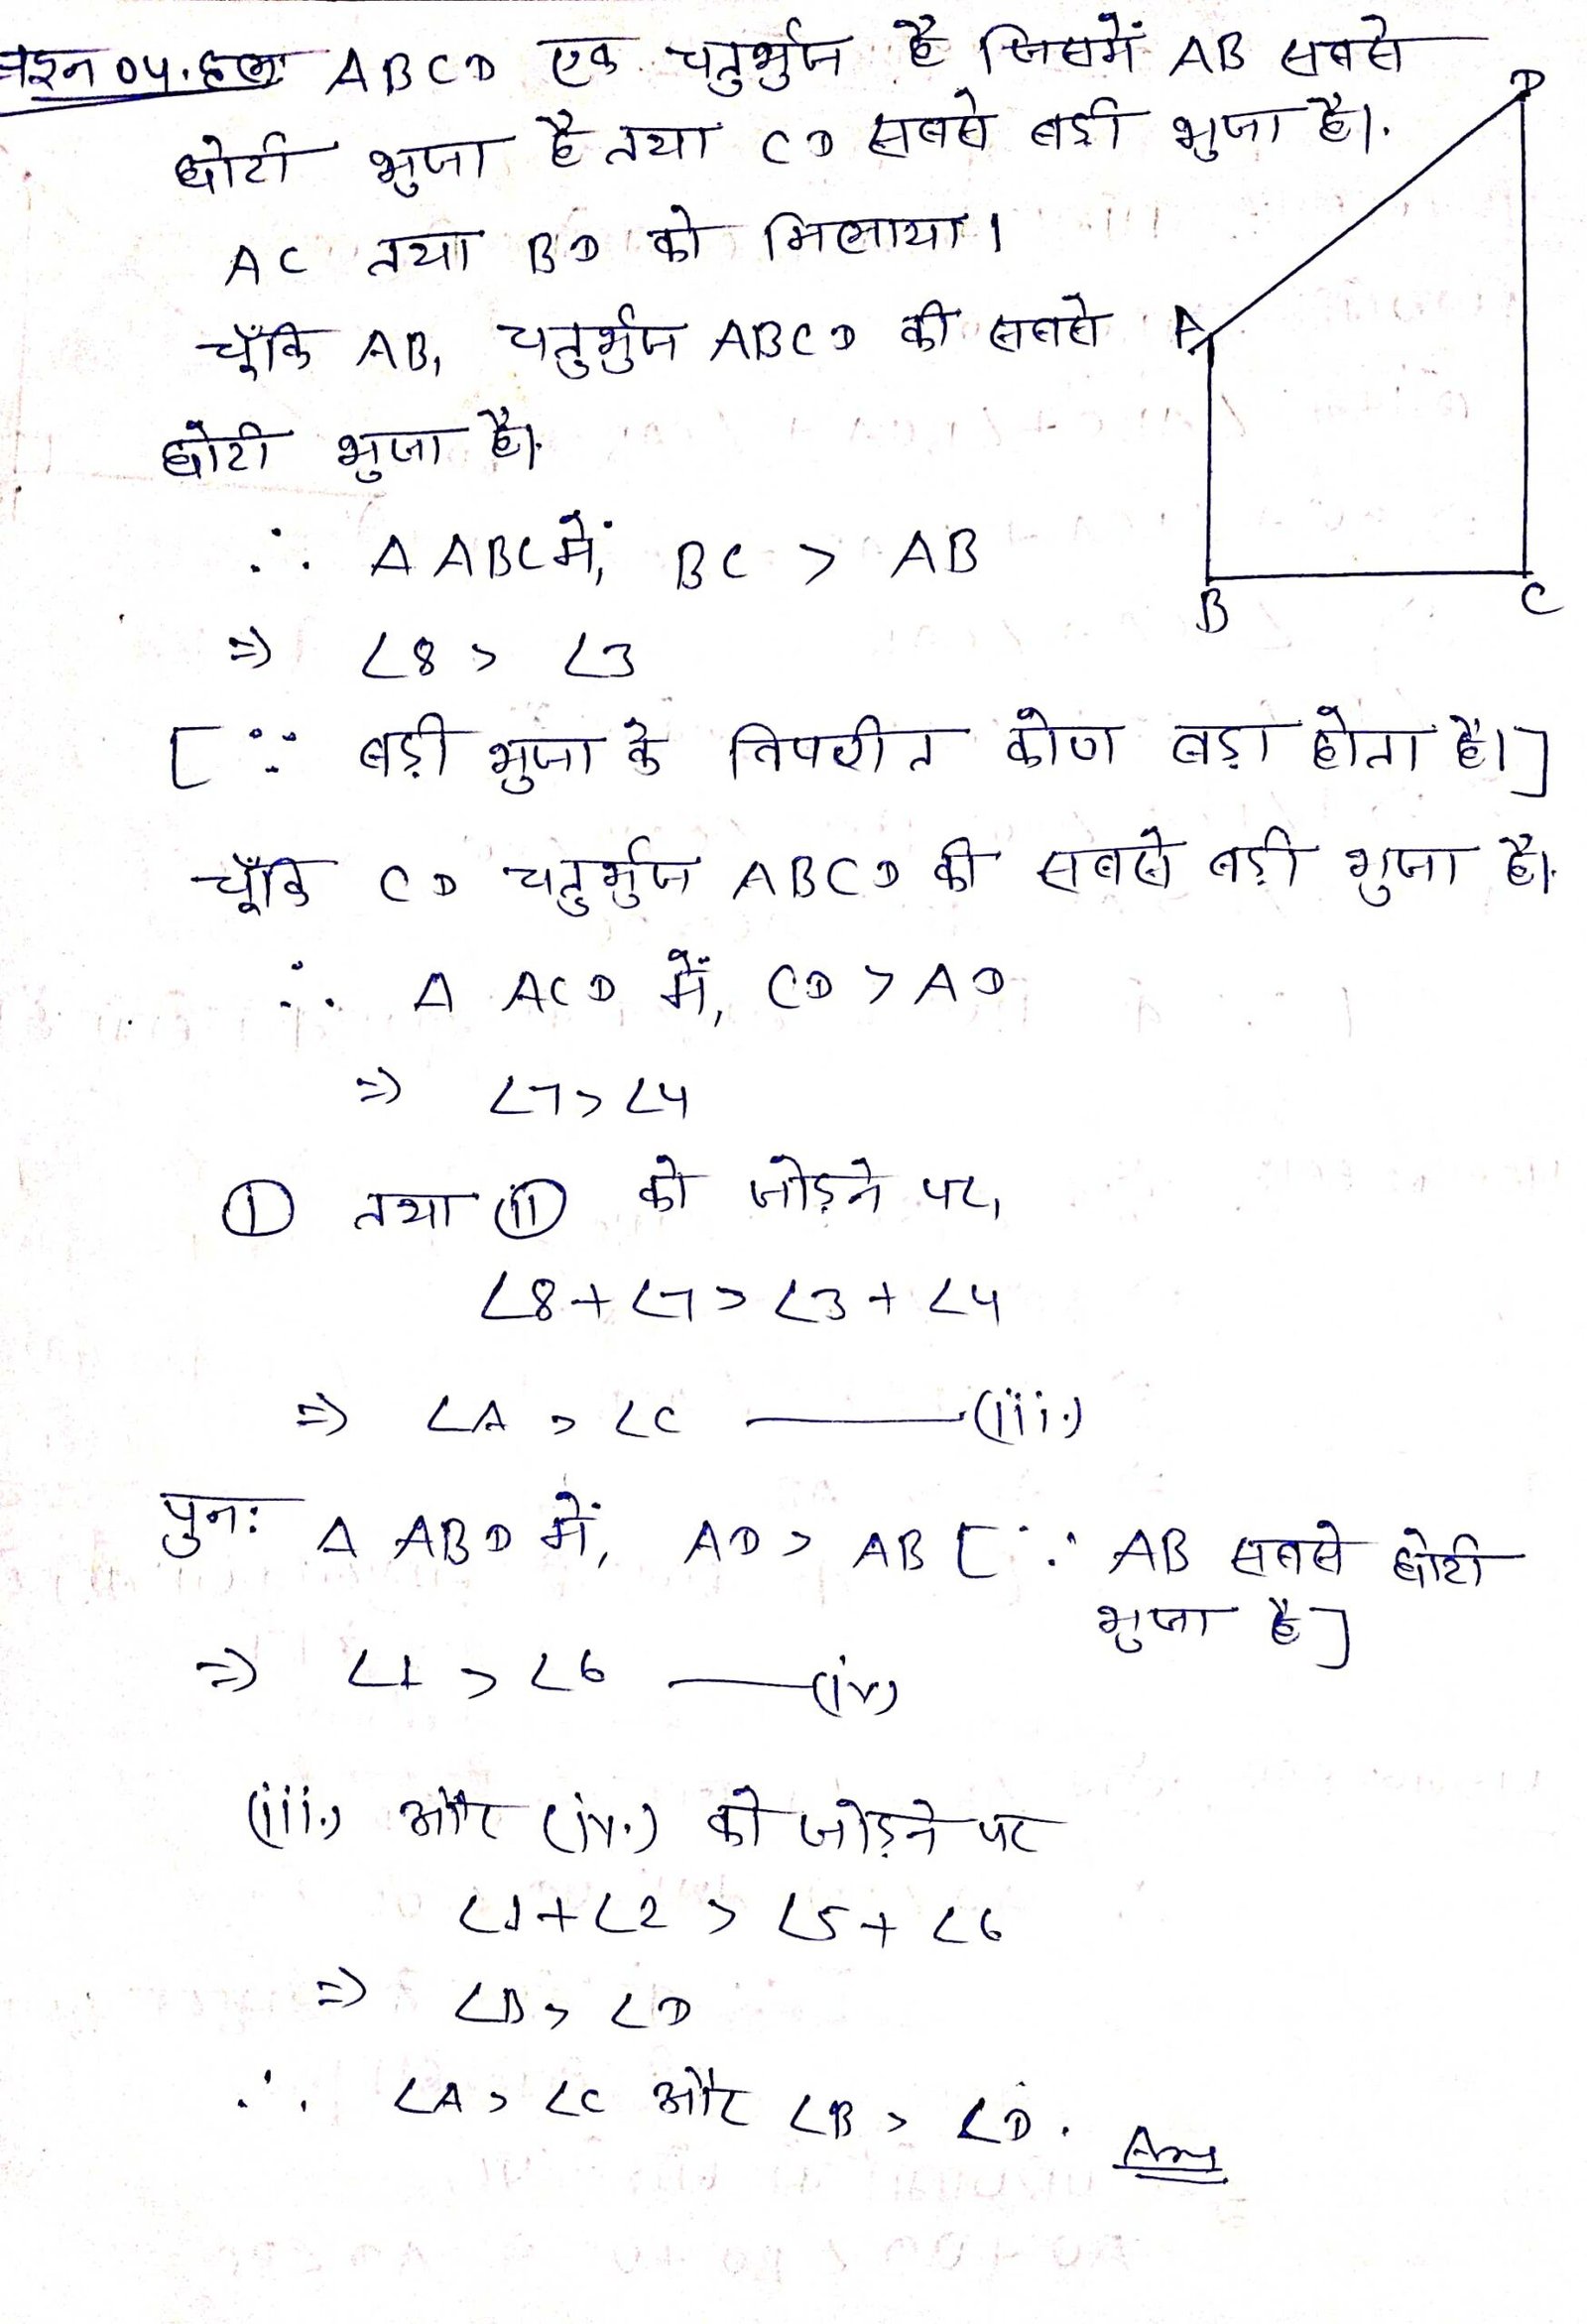 प्रश्न 04. हल: ABCD एक चतुर्भुज है जिसमें AB सबसे
छोटी भुजा है तथा CD सबसे बड़ी भुजा है।
AC तथा BD को मिलाया।
चूँकि AB, चतुर्भुज ABCD की सबसे
छोटी भुजा है।
∴ Δ ABC में, BC > AB
⇒ ∠8 > ∠3
[∵ बड़ी भुजा के विपरीत कोण बड़ा होता है।]
चूँकि CD चतुर्भुज ABCD की सबसे बड़ी भुजा है।
∴ Δ ACD में, CD > AD
⇒ ∠7 > ∠4
(i) तथा (ii) को जोड़ने पर,
∠8 + ∠7 > ∠3 + ∠4
⇒ ∠A > ∠C ——— (iii.)
पुनः Δ ABD में, AD > AB [∵ AB सबसे छोटी
भुजा है]
⇒ ∠1 > ∠6 ——— (iv)
(iii.) और (iv.) को जोड़ने पर
∠1 + ∠2 > ∠5 + ∠6
⇒ ∠B > ∠D
∴ ∠A > ∠C और ∠B > ∠D. Ans
D
A
B
C